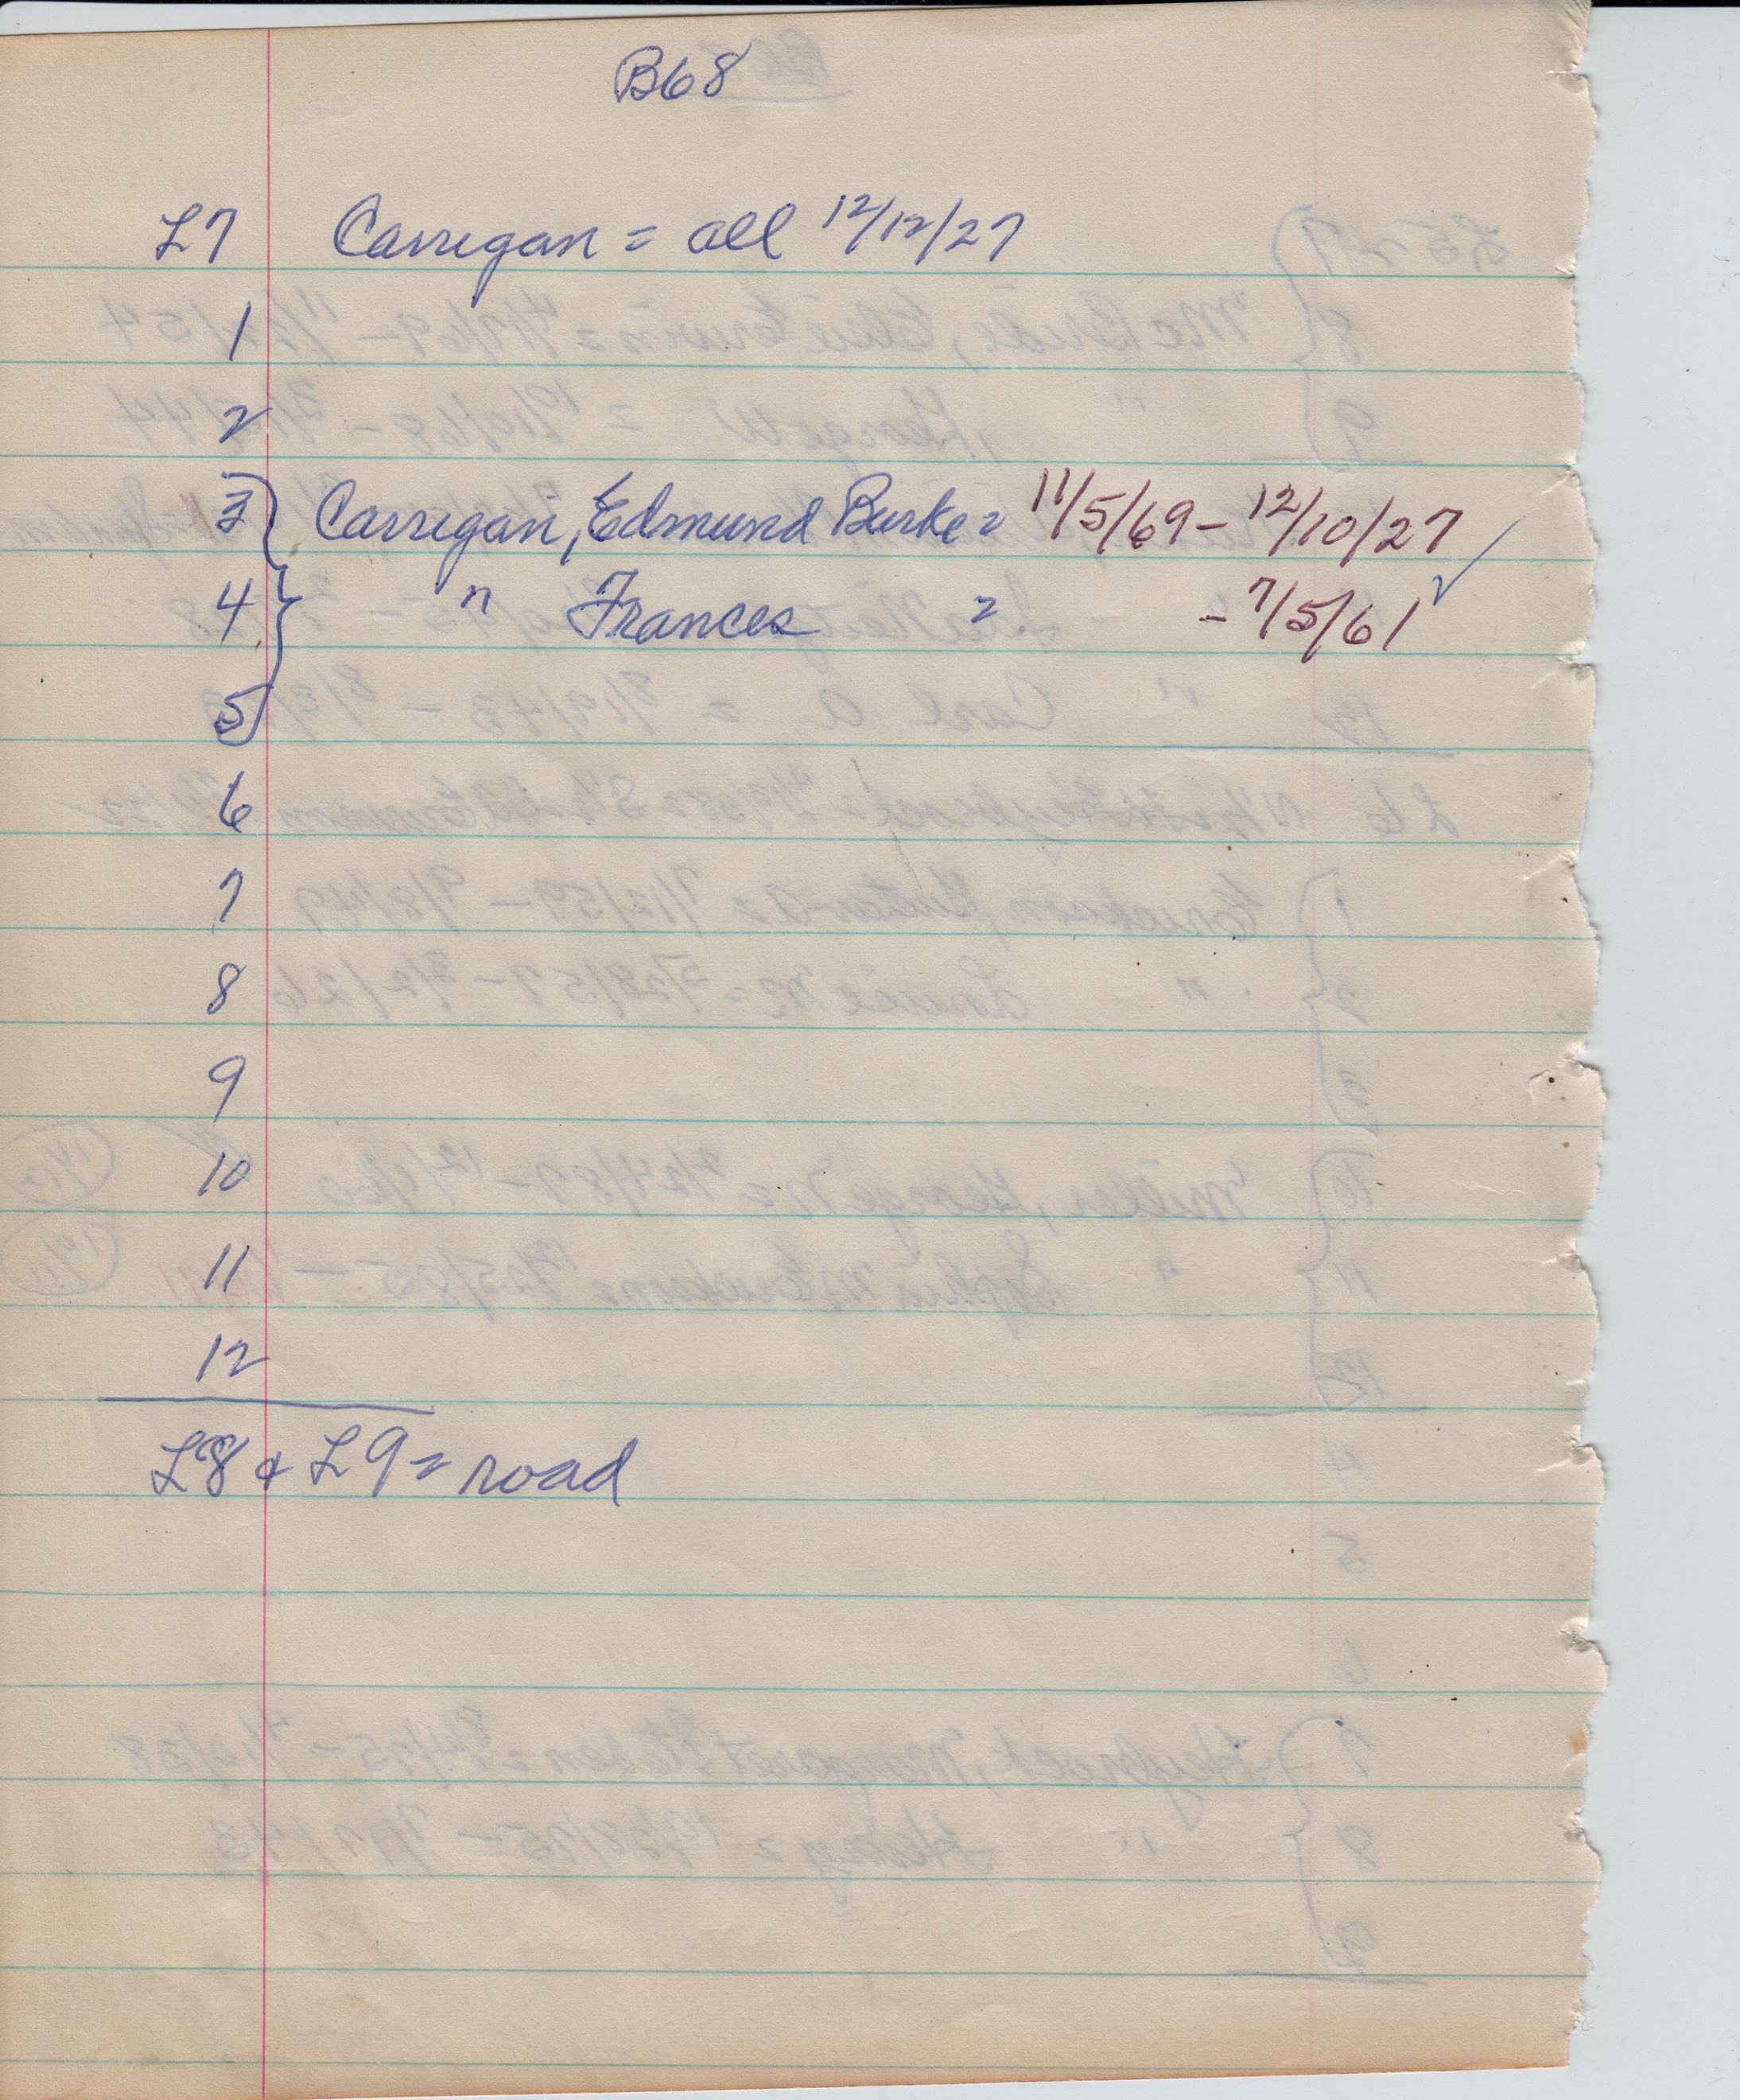 B68
L7 Carrigan = all 12/12/27
1
2
3 Carrigan, Edmund Burke = 11/5/69 - 12/10/27 ✓
4 " Frances = - 7/5/61 ✓
5
6
7
8
9
10
11
12
L8 & L9 = road